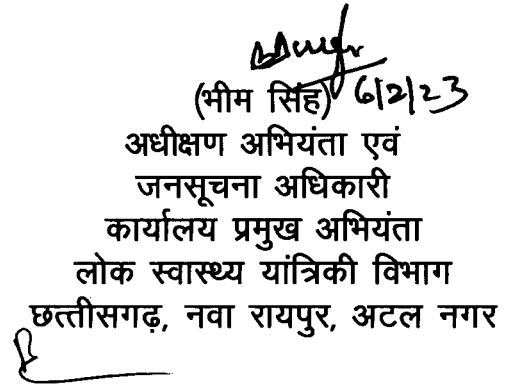 (भीम सिंह) 6/2/23
अधीक्षण अभियंता एवं
जनसूचना अधिकारी
कार्यालय प्रमुख अभियंता
लोक स्वास्थ्य यांत्रिकी विभाग
छत्तीसगढ़, नवा रायपुर, अटल नगर